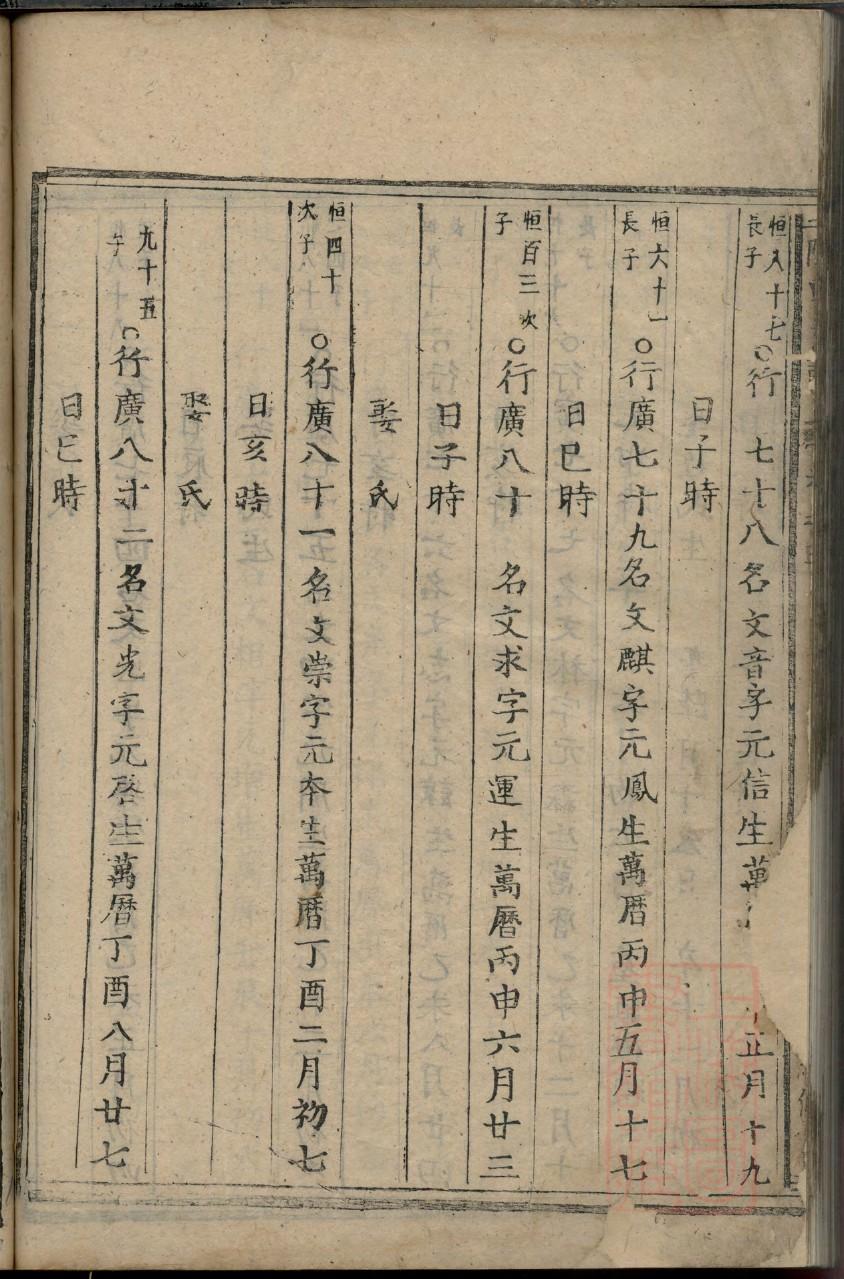 恒八十七
長子
○行 七十八名文音字元信生萬 正月十九
日子時
恒六十一
長子
○行廣七十九名文麒字元鳳生萬暦丙申五月十七
日巳時
恒百三次
子
○行廣八十 名文求字元運生萬暦丙申六月廿三
日子時
娶 氏
恒四十
次子
○行廣八十一名文崇字元本生萬暦丁酉二月初七
日亥時
娶 氏
九十五
子
○行廣八十二名文光字元啓生萬暦丁酉八月廿七
日巳時